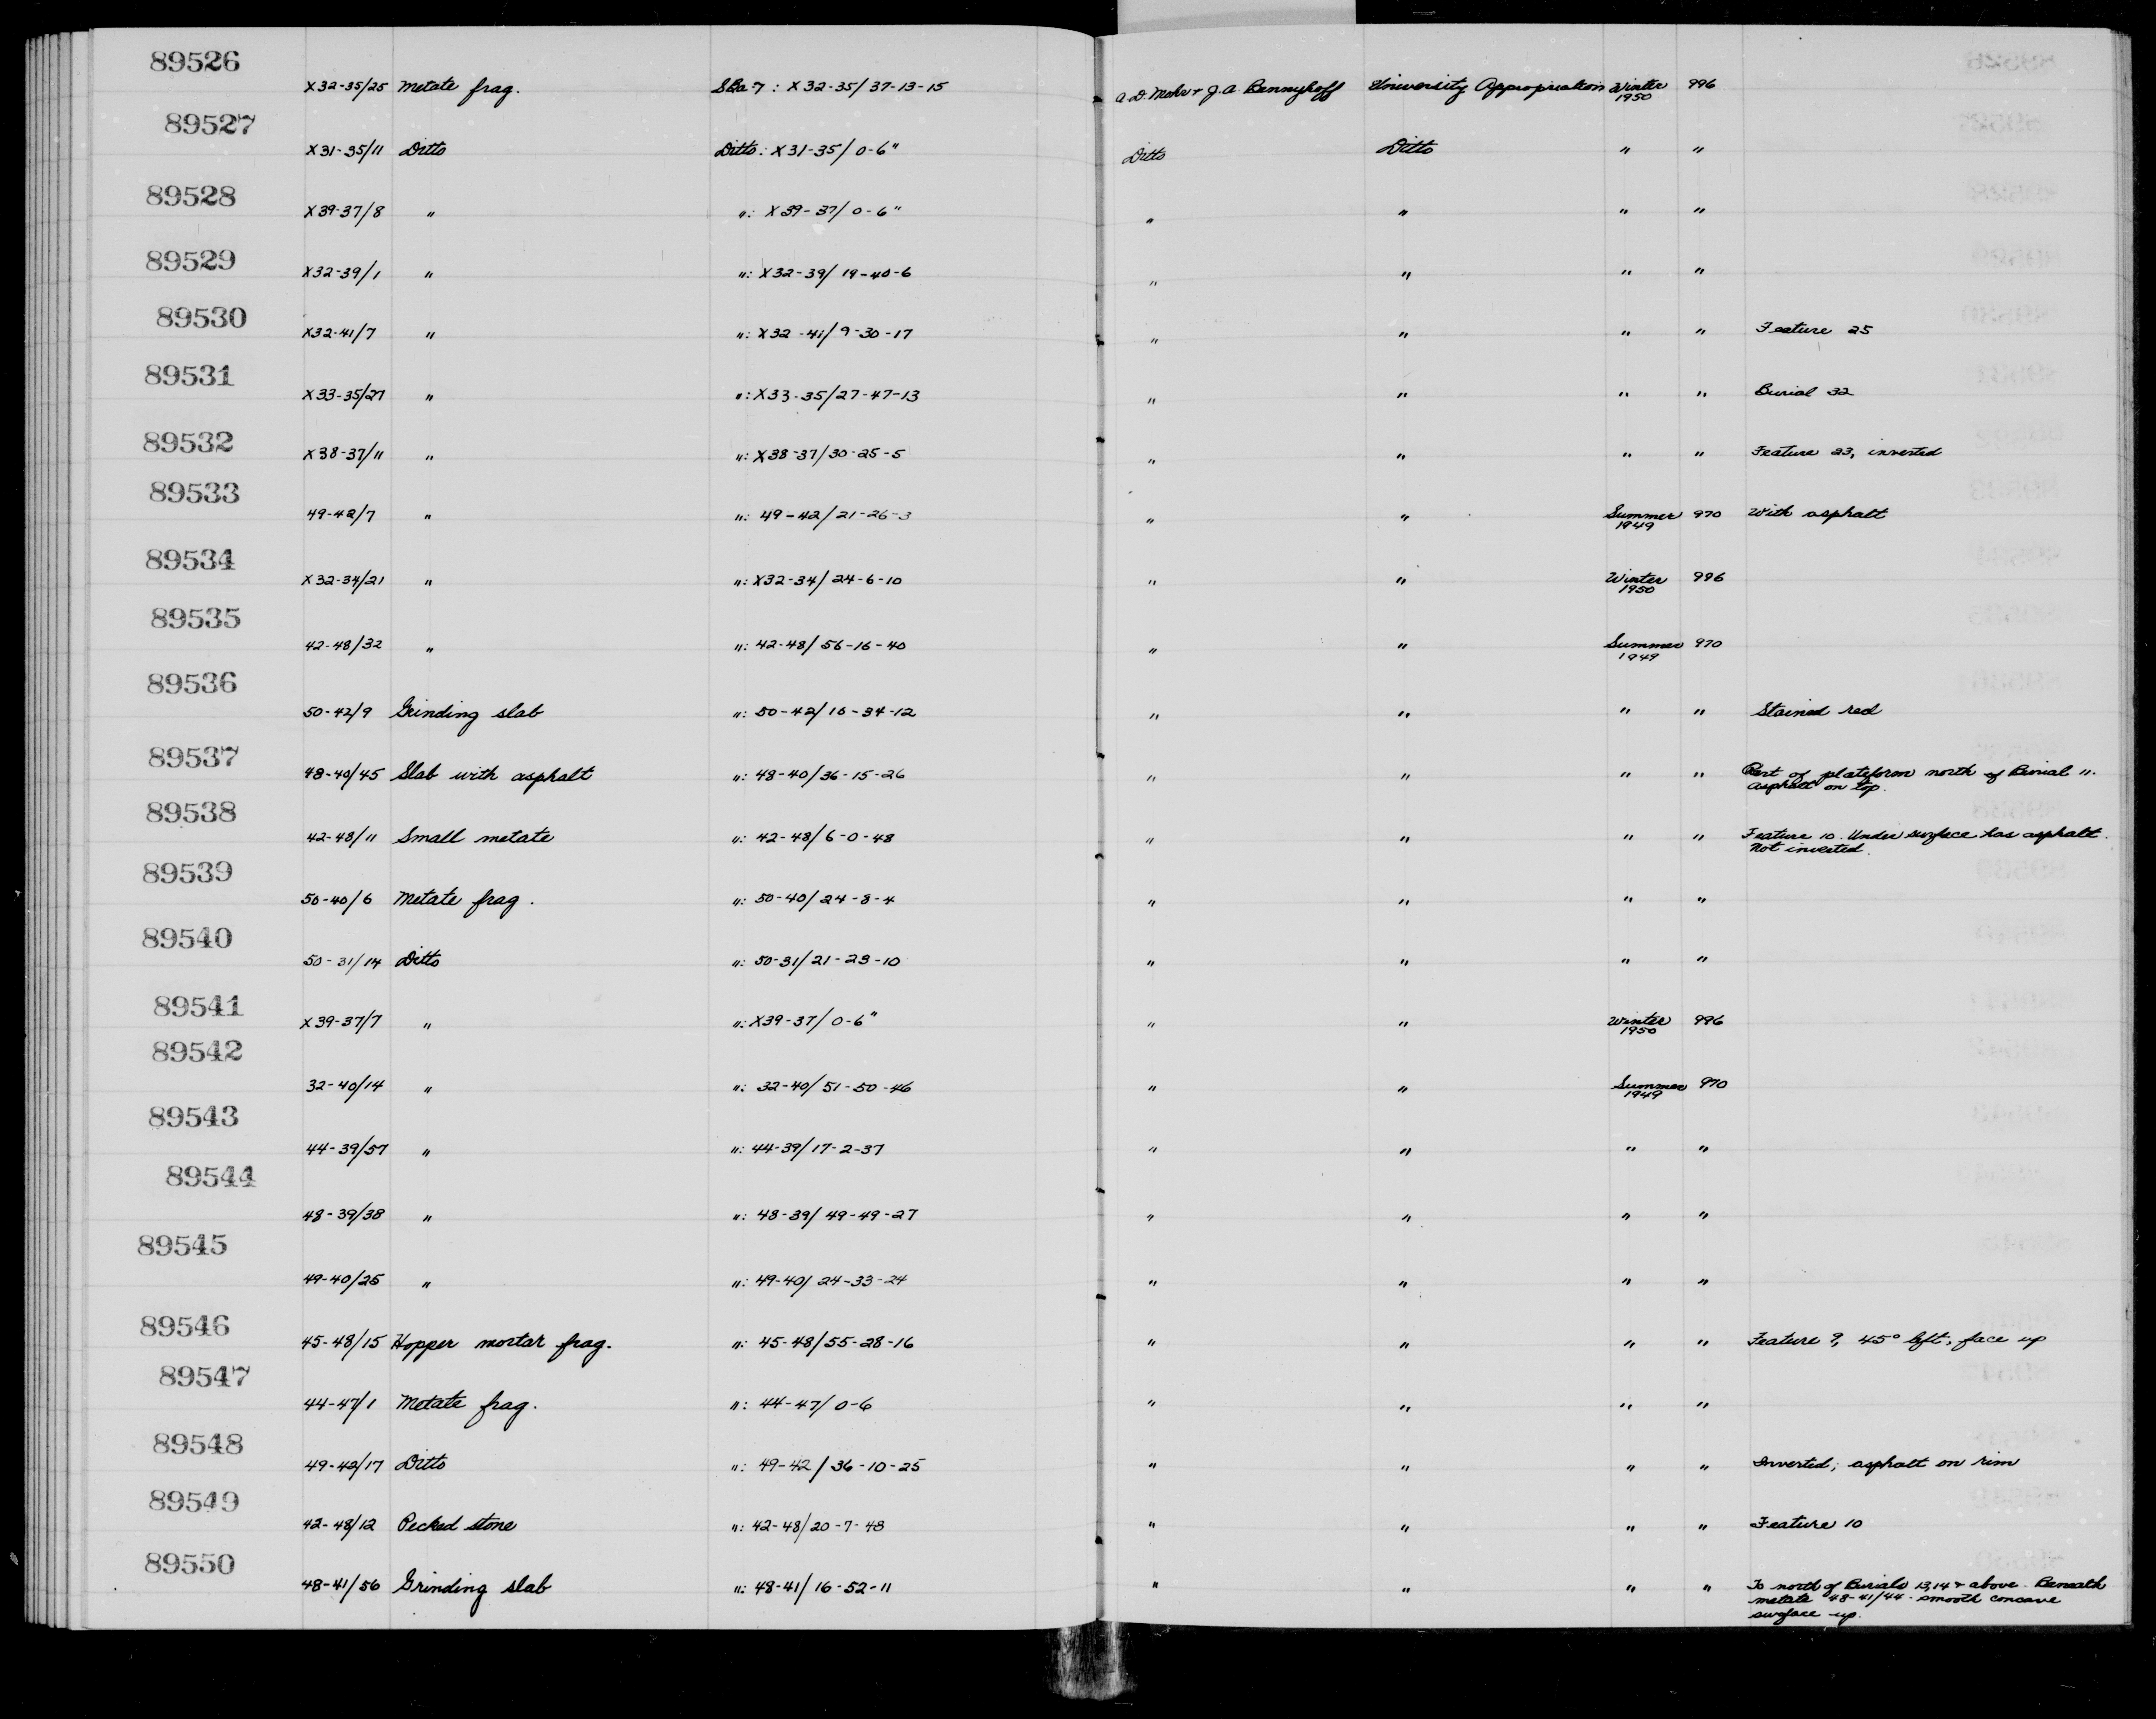 89526
X32-35/25 Metate frag. SBa-7 : X32-35/37-13-15 A.D. Mohr + J.A. Bennyhoff University Appropriation Winter 1950 996
89527
X31-35/11 Ditto Ditto: X31-35/0-6" Ditto Ditto " "
89528
X39-37/8 " ": X39-37/0-6" " " " "
89529
X32-39/1 " ": X32-39/19-40-6 " " " "
89530
X32-41/7 " ": X32-41/9-30-17 " " " " Feature 25
89531
X33-35/27 " ": X33-35/27-47-13 " " " " Burial 32
89532
X38-37/11 " ": X38-37/30-25-5 " " " " Feature 23, inverted
89533
49-42/7 " ": 49-42/21-26-3 " " Summer 1949 970 With asphalt
89534
X32-34/21 " ": X32-34/24-6-10 " " Winter 1950 996
89535
42-48/32 " ": 42-48/56-16-40 " " Summer 1949 970
89536
50-42/9 Grinding slab ": 50-42/16-34-12 " " " " Stained red
89537
48-40/45 Slab with asphalt ": 48-40/36-15-26 " " " " Part of plateform north of Burial 11.
Asphalt on top.
89538
42-48/11 Small metate ": 42-48/6-0-48 " " " " Feature 10. Under surface has asphalt.
Not inverted.
89539
50-40/6 Metate frag. ": 50-40/24-8-4 " " " "
89540
50-31/14 Ditto ": 50-31/21-23-10 " " " "
89541
X39-37/7 " ": X39-37/0-6" " " Winter 1950 996
89542
32-40/14 " ": 32-40/51-50-46 " " Summer 1949 970
89543
44-39/57 " ": 44-39/17-2-37 " " " "
89544
48-39/38 " ": 48-39/49-49-27 " " " "
89545
49-40/25 " ": 49-40/24-33-24 " " " "
89546
45-48/15 Hopper mortar frag. ": 45-48/55-28-16 " " " " Feature 9, 45° left, face up
89547
44-47/1 Metate frag. ": 44-47/0-6 " " " "
89548
49-42/17 Ditto ": 49-42/36-10-25 " " " " Inverted; asphalt on rim
89549
42-48/12 Pecked stone ": 42-48/20-7-48 " " " " Feature 10
89550
48-41/56 Grinding slab ": 48-41/16-52-11 " " " " To north of Burials 13,14 + above. Beneath
metate 48-41/44. smooth concave
surface up.